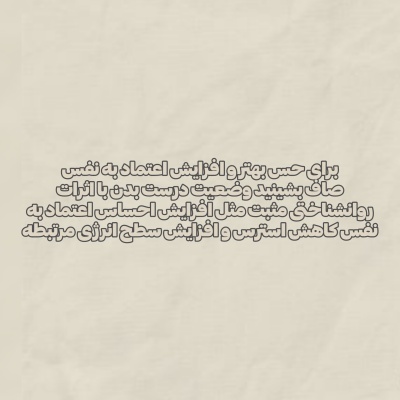 برای حس بهتر و افزایش اعتماد به نفس
صاف بشینید وضعیت درست بدن با اثرات
روانشناختی مثبت مثل افزایش احساس اعتماد به
نفس کاهش استرس و افزایش سطح انرژی مرتبطه